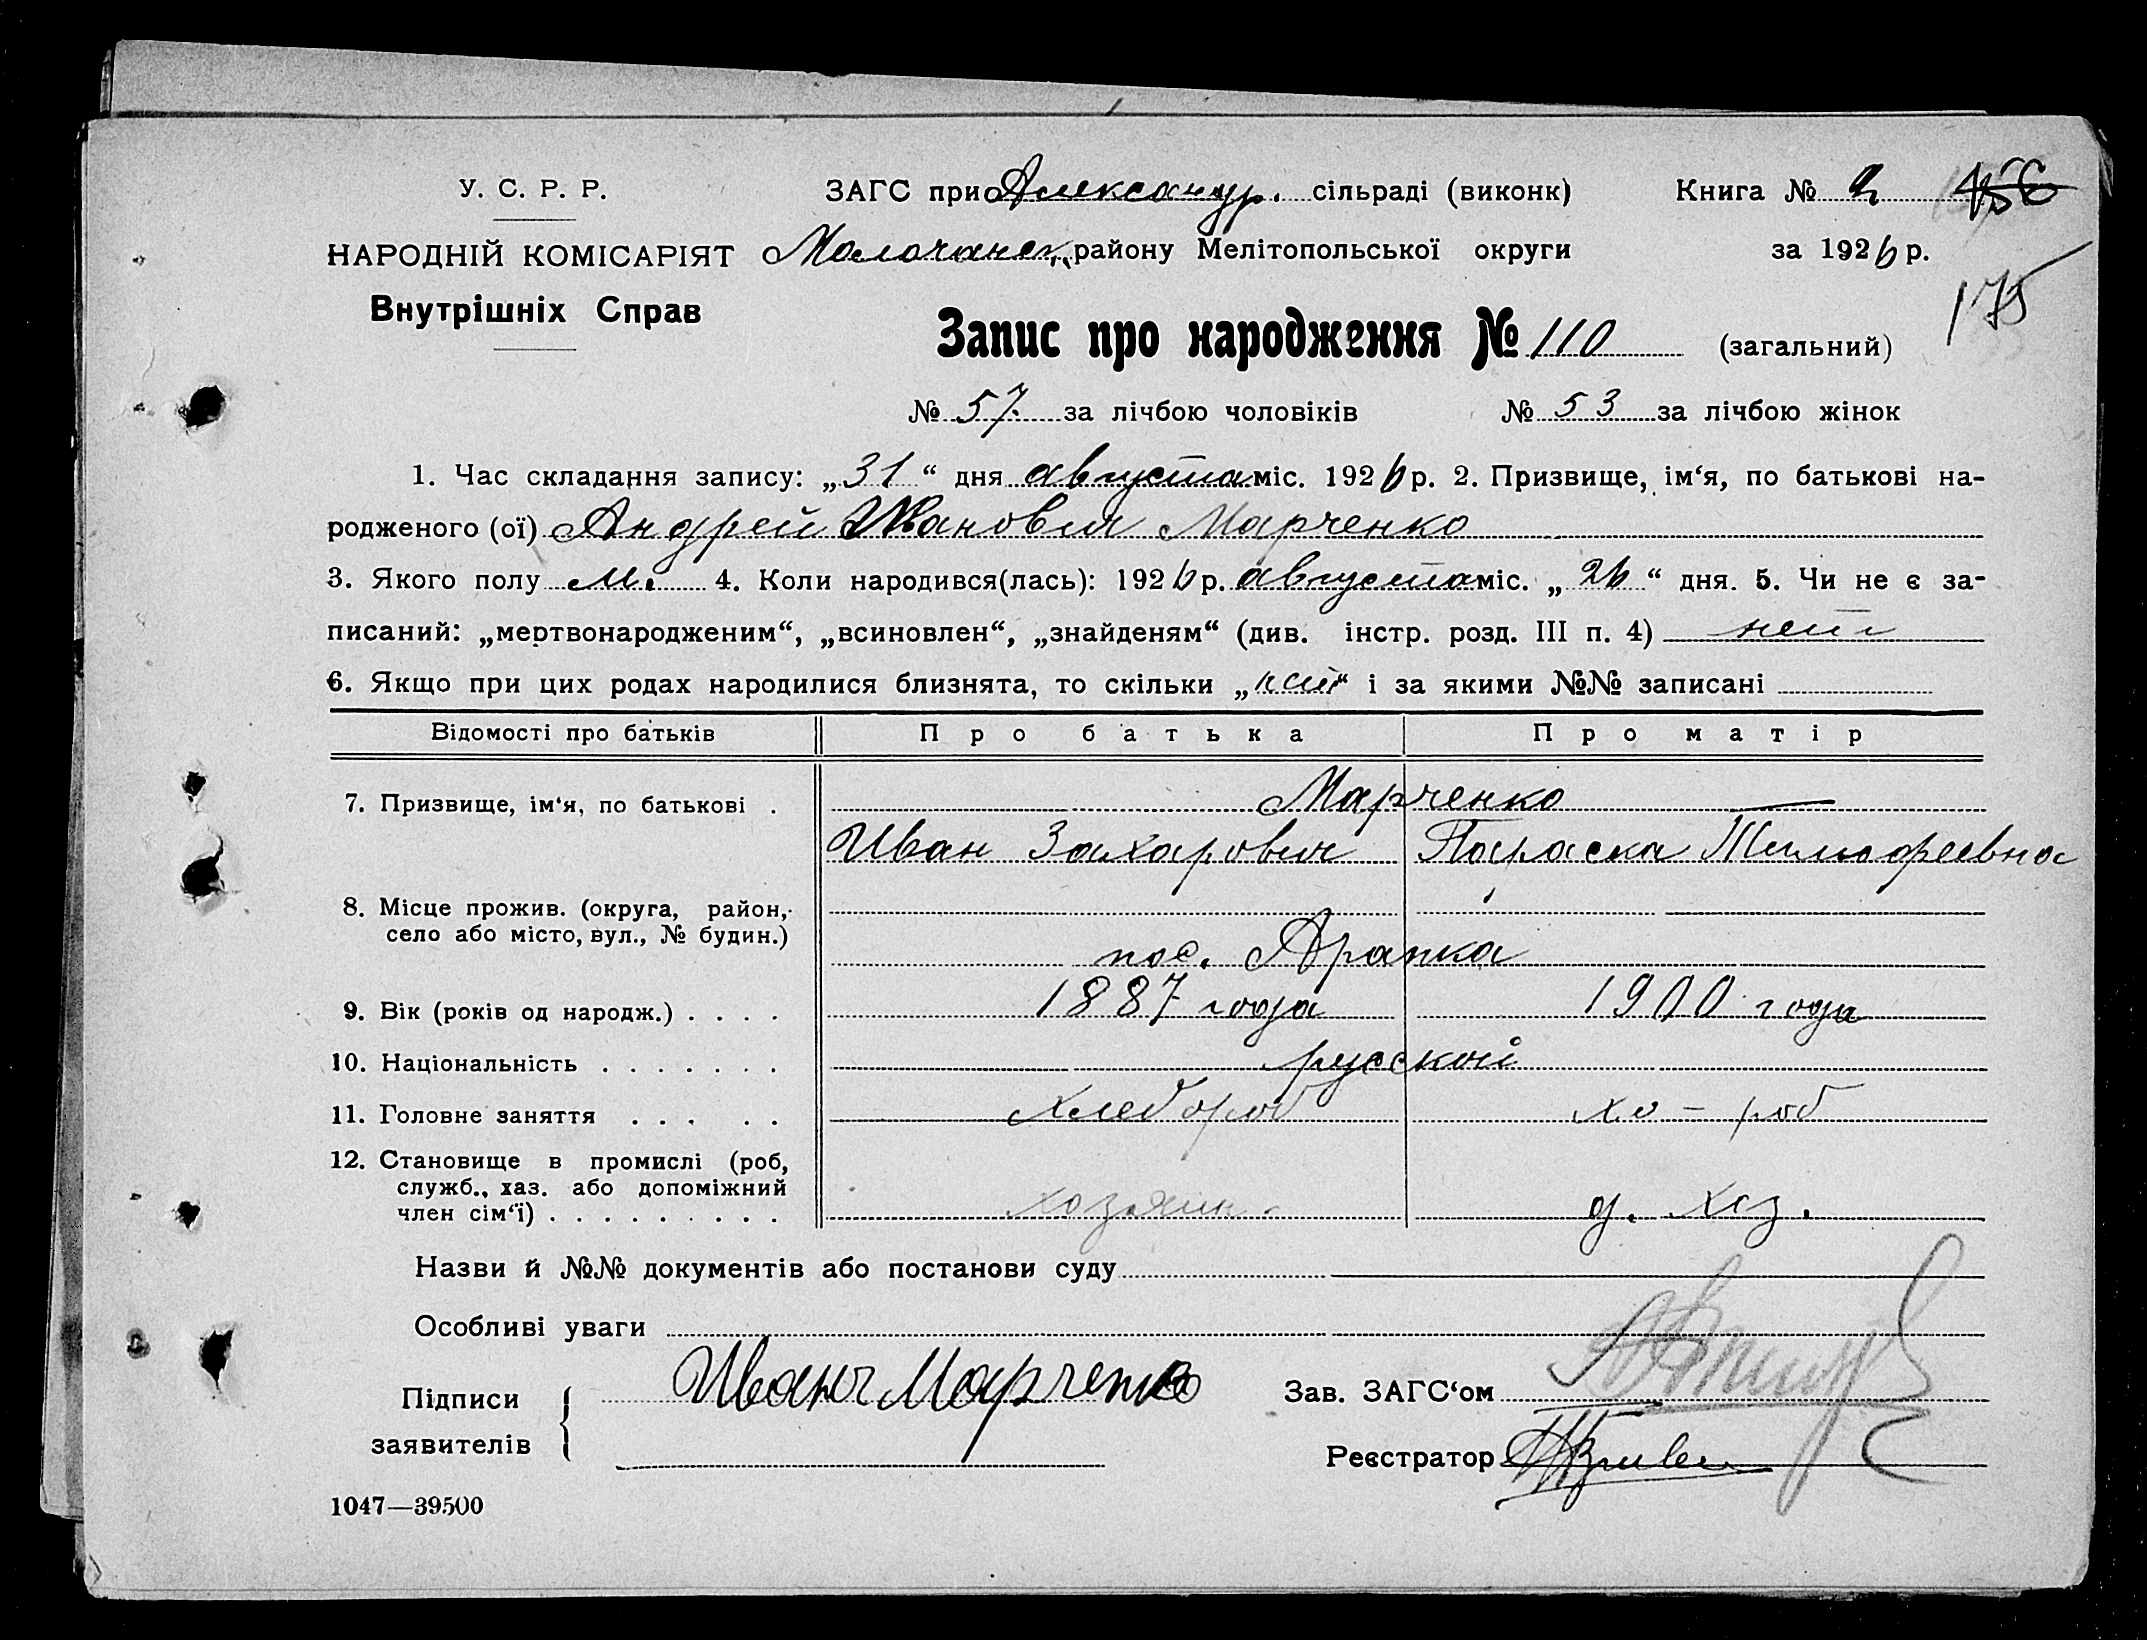 У. С. Р. Р.
ЗАГС при Александр. сільраді (виконк)
Книга № 2 156
НАРОДНІЙ КОМІСАРІЯТ
Молочанск. району Мелітопольської округи
за 1926 р.
Внутрішніх Справ
175
Запис про народження № 110 (загальний)
№ 57 за лічбою чоловіків № 53 за лічбою жінок
1. Час складання запису: „31“ дня августа міс. 1926 р. 2. Призвище, ім‘я, по батькові на-
родженого (ої) Андрей Иванович Марченко
3. Якого полу м. 4. Коли народився(лась): 1926 р. августа міс. „26“ дня. 5. Чи не є за-
писаний: „мертвонародженим“, „всиновлен“, „знайденям“ (див. інстр. розд. III п. 4) нет
6. Якщо при цих родах народилися близнята, то скільки „нет“ і за якими №№ записані
Відомості про батьків Про батька Про матір
7. Призвище, ім‘я, по батькові . Марченко —
Иван Захарович Параска Тимофеевна
8. Місце прожив. (округа, район,
село або місто, вул., № будин.)
пос. Арапка
9. Вік (років од народж.) . . . . 1887 года 1900 года
10. Національність . . . . . . . русский
11. Головне заняття . . . . . хлебороб хл-роб
12. Становище в промислі (роб,
служб., хаз. або допоміжний
член сім‘ї) . . . . . . . . . хозяин. д. хоз.
Назви й №№ документів або постанови суду
Особливі уваги
Підписи
заявителів
Иван Марченко
Зав. ЗАГС‘ом
Реєстратор
1047—39500